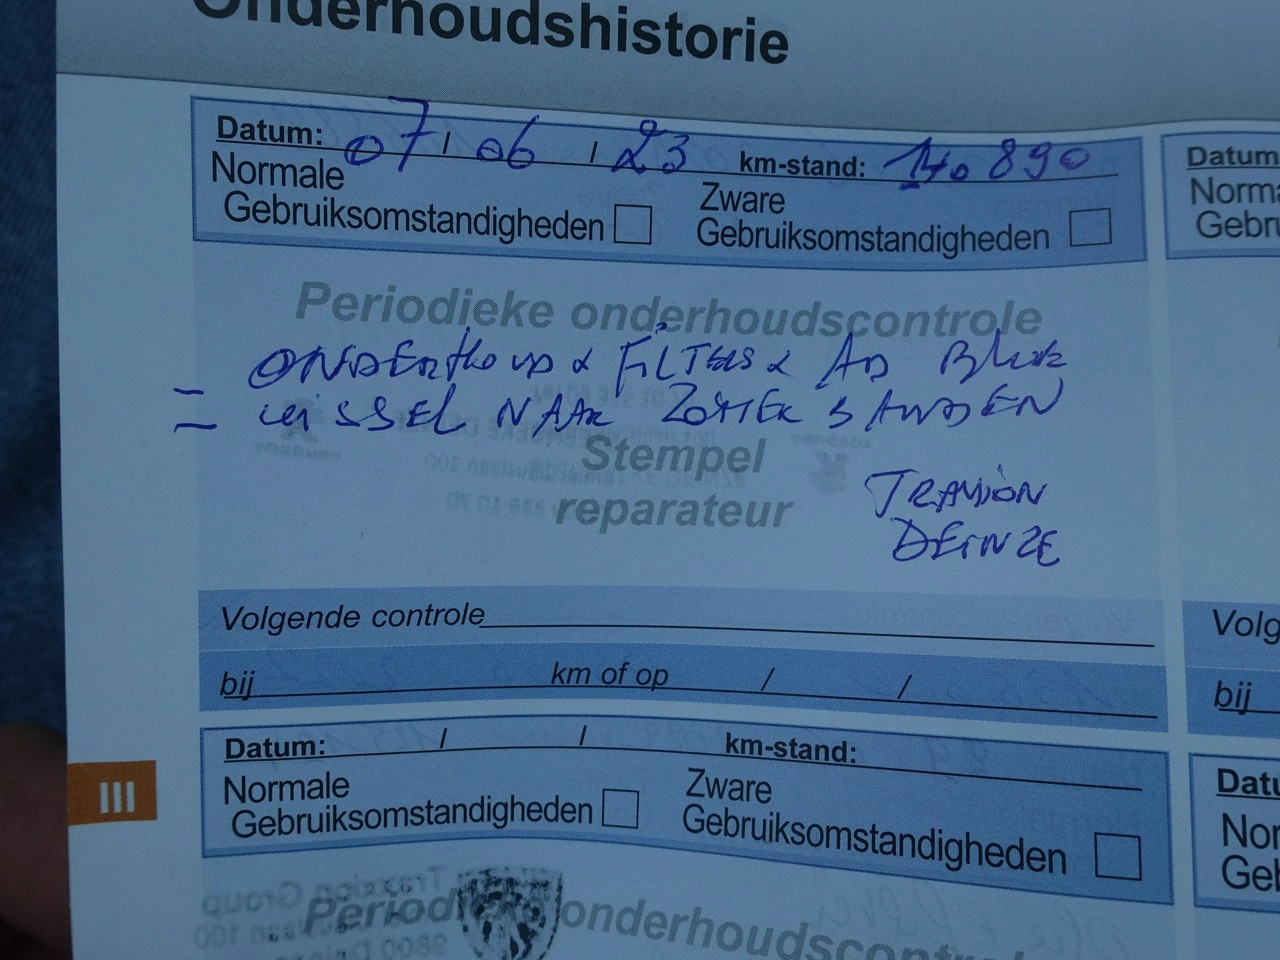 Onderhoudshistorie
Datum: 07 / 06 / 23 km-stand: 140 890
Normale
Gebruiksomstandigheden
Zware
Gebruiksomstandigheden
Periodieke onderhoudscontrole
ONDERHOUD & FILTERS & AD Blue
= WISSEL NAAR ZOMER BANDEN
Stempel
reparateur
TRAXION
DEINZE
Volgende controle
bij km of op / /
Datum: / / km-stand:
Normale
Gebruiksomstandigheden
Zware
Gebruiksomstandigheden
III
Periodieke onderhoudscontrol
Traxxion Group
9800 Deinze
Datum
Norma
Gebru
Volg
bij
Datu
Nor
Geb